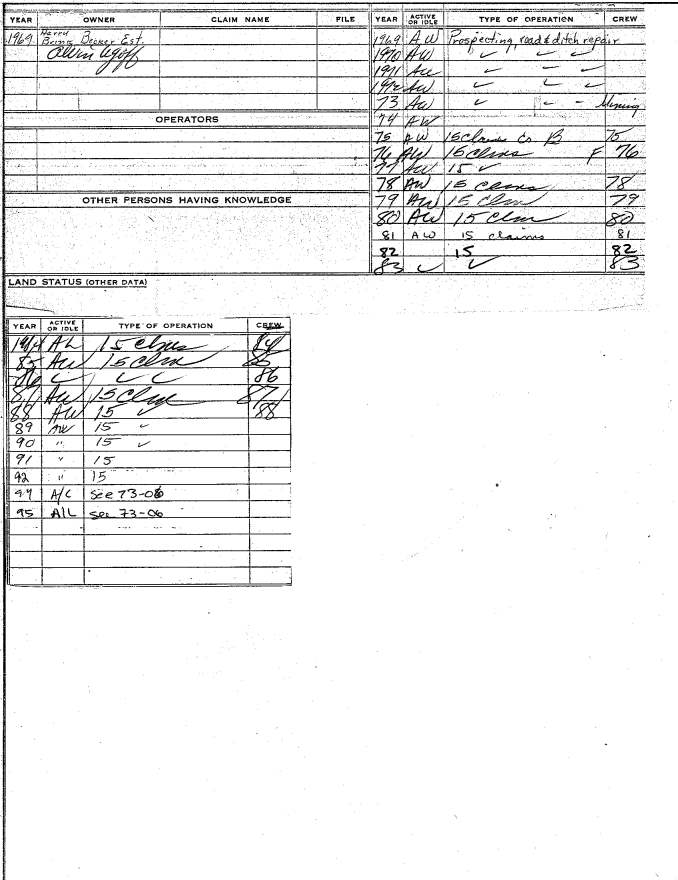 YEAR OWNER CLAIM NAME FILE
1969 Harry Becker Est.
Alvin Agoff
OPERATORS
OTHER PERSONS HAVING KNOWLEDGE
YEAR ACTIVE OR IDLE TYPE OF OPERATION CREW
1969 AW Prospecting, road & ditch repair
1970 AW ✓ ✓ ✓
1971 AW ✓ – ✓
1972 AW ✓ ✓ ✓
73 AW ✓ – – Mining
74 AW
75 AW 15 Claims Co B 75
76 AW 15 Clms F 76
77 AW 15 ✓
78 AW 15 Clms 78
79 AW 15 Clm 79
80 AW 15 Clm 80
81 AW 15 claims 81
82 15 82
83 ✓ ✓ 83
LAND STATUS (OTHER DATA)
YEAR ACTIVE OR IDLE TYPE OF OPERATION CREW
1984 AL 15 Clms 84
85 AW 15 Clm 85
86 ✓ ✓ ✓ 86
87 AW 15 Clm 87
88 AW 15 ✓ 88
89 AW 15 ✓
90 " 15 ✓
91 " 15
92 " 15
94 A/C See 73-06
95 A/L See 73-06